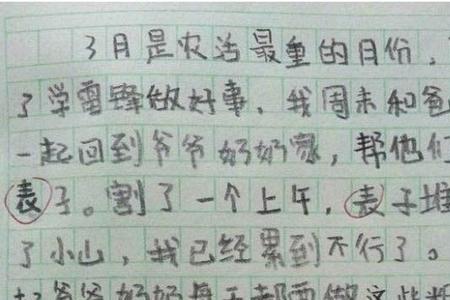 3月是农活最重的月份，
了学雷锋做好事，我周末和爸
一起回到爷爷奶奶家，帮他们
表子。割了一个上午，表子堆
了小山，我已经累到不行了。
爷爷奶奶每天都要做这些